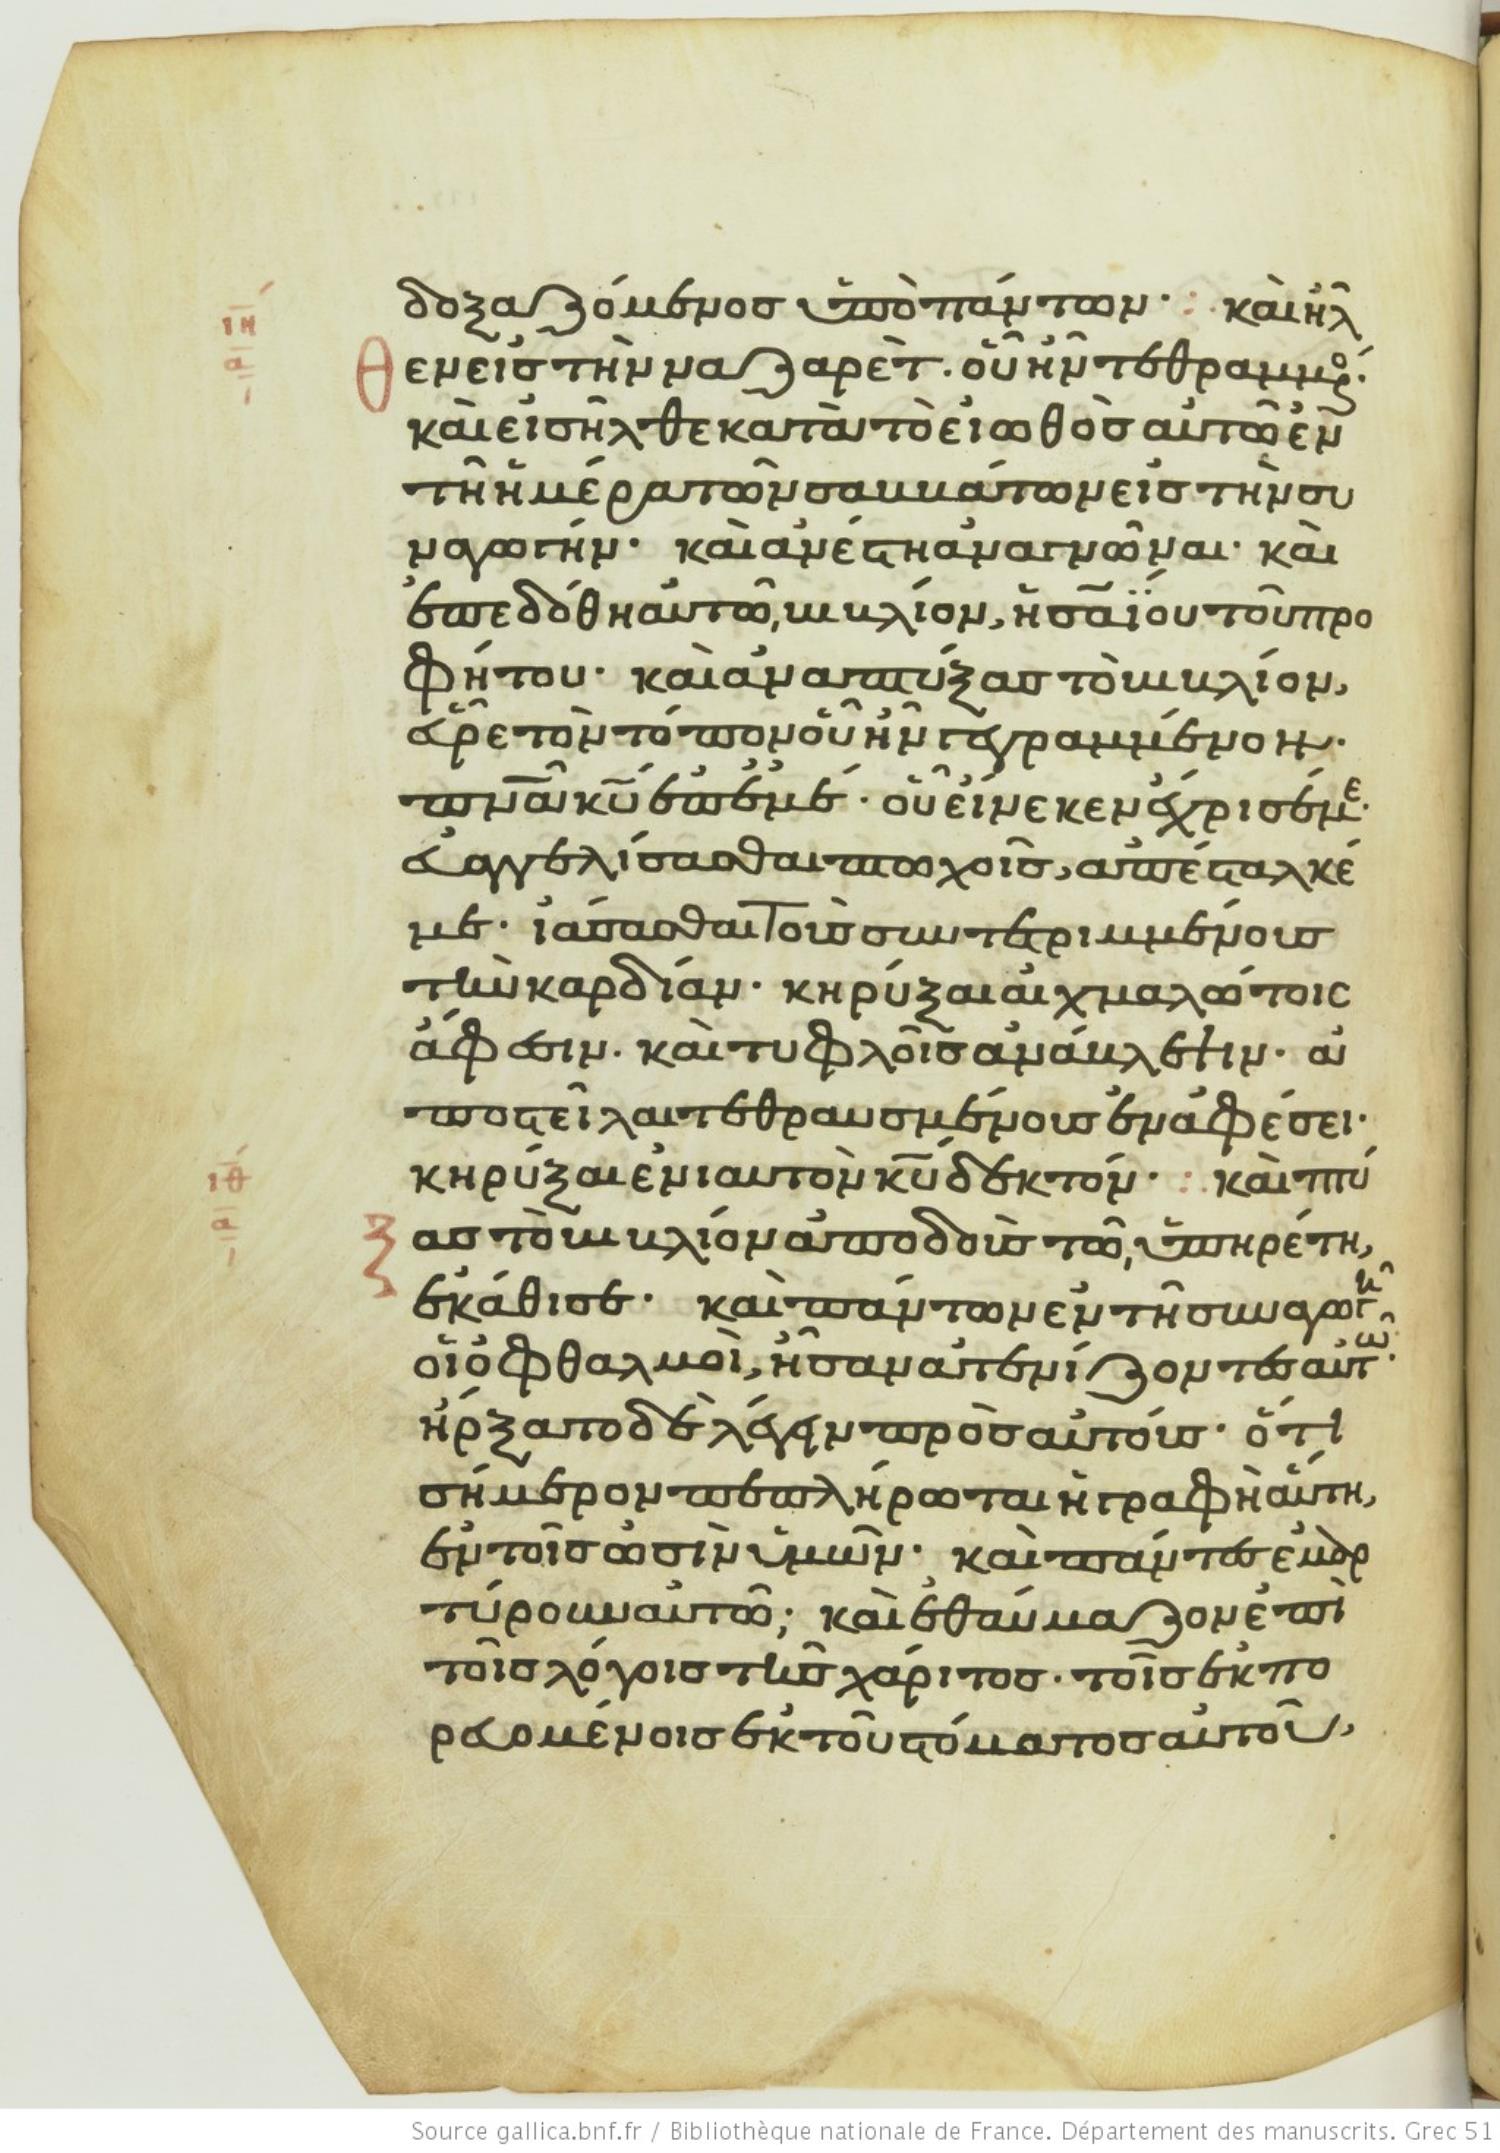 δοξαζόμενοσ ὑπὸ πάντων· : καὶ ἦλ
ιη
α
θεν εἰσ τὴν ναζαρὲτ. οὗ ἦν τεθραμμέν(ος)·
καὶ εἰσῆλθε κατὰ τὸ εἰωθὸσ αὐτῶ ἐν
τῆ ἡμέρα τῶν σαββάτων εἰσ τὴν συ
ναγωγήν· καὶ ἀνέστη ἀναγνῶναι· καὶ
ἐπεδόθη αὐτῶ, βιβλίον, ἡσαΐου τοῦ προ
φήτου· καὶ ἀναπτύξασ τὸ βιβλίον,
εὗρε τὸν τόπον οὗ ἦν γεγραμμένον·
πνᾱ κῡ ἐπ' ἐμέ· οὗ εἵνεκεν ἔχρισέ με·
εὐαγγελίσασθαι πτωχοῖσ, ἀπέσταλκέ
με· ἰάσασθαι τοὺσ συντετριμμένουσ
τὴν καρδίαν· κηρύξαι αἰχμαλώτοις
ἄφεσιν. καὶ τυφλοῖσ ἀνάβλεψιν· ἀ
ποστεῖλαι τεθραυσμένουσ ἐν ἀφέσει·
κηρύξαι ἐνιαυτὸν κῡ δεκτόν· : καὶ πτύ
ιθ
α
ξασ τὸ βιβλίον ἀποδοὺσ τῶ, ὑπηρέτη,
ἐκάθισε· καὶ πάντων ἐν τῆ συναγωγῆ
οἱ ὀφθαλμοὶ, ἦσαν ἀτενίζοντεσ αὐτῶ·
ἤρξατο δὲ λέγειν πρὸσ αὐτούσ· ὅτι
σήμερον πεπλήρωται ἡ γραφὴ αὕτη,
ἐν τοῖσ ὠσὶν ὑμῶν· καὶ πάντεσ ἐμαρ
τύρουν αὐτῶ; καὶ ἐθαύμαζον ἐπὶ
τοῖσ λόγοισ τῆσ χάριτοσ· τοῖσ ἐκπο
ρευομένοισ ἐκ τοῦ στόματοσ αὐτοῦ,
Source gallica.bnf.fr / Bibliothèque nationale de France. Département des manuscrits. Grec 51